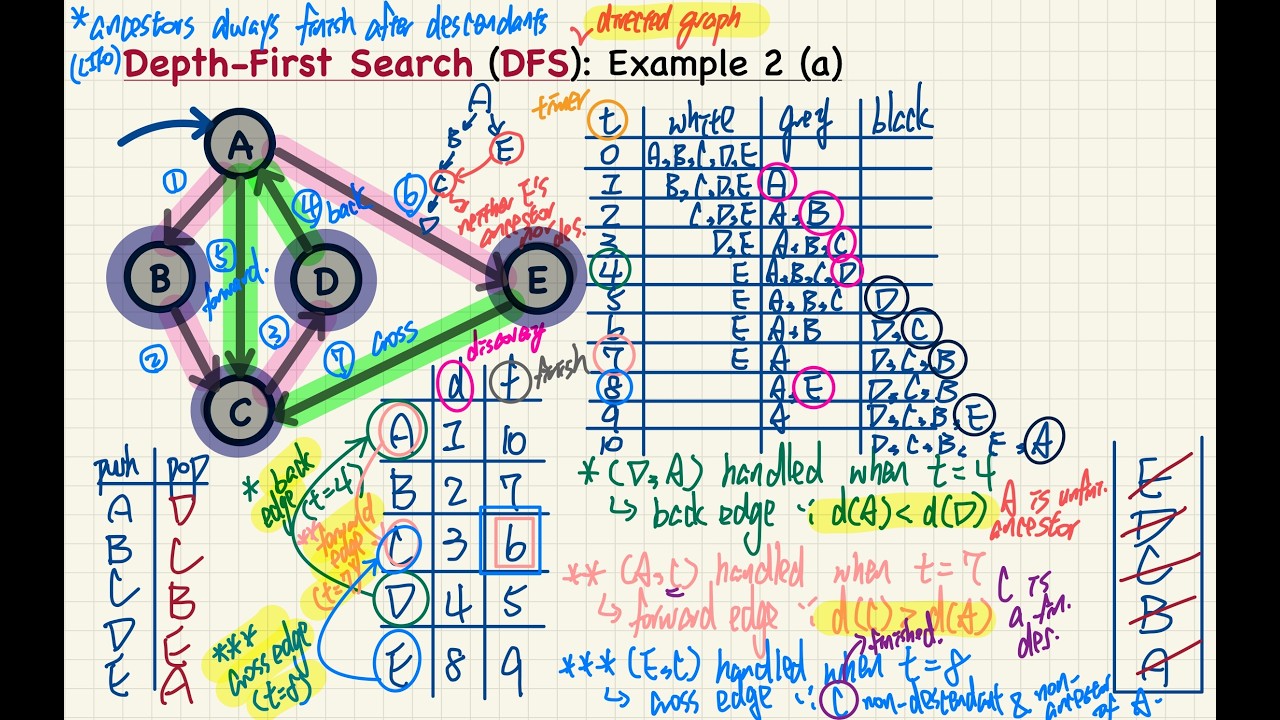 *ancestors always finish after descendants
directed graph
(LIFO) Depth-First Search (DFS): Example 2 (a)
A
B
C
D
E
①
②
③
④ back
⑤ forward.
⑥
⑦ cross
A
B
E
C
D
neither E's
ancestor
nor des.
timer
t white grey black
0 A,B,C,D,E
1 B,C,D,E A
2 C,D,E A,B
3 D,E A,B,C
4 E A,B,C,D
5 E A,B,C D
6 E A,B D,C
7 E A D,C,B
8 A,E D,C,B
9 A D,C,B,E
10 D,C,B, E,A
discovery
d f finish
A 1 10
B 2 7
C 3 6
D 4 5
E 8 9
push pop
A D
B C
C B
D E
E A
* back
edge
(t=4)
** forward
edge
(t=7)
***
cross edge
(t=8)
* (D,A) handled when t=4
↳ back edge ∵ d(A) < d(D)
A is unfin.
ancestor
** (A,C) handled when t=7
↳ forward edge ∵ d(C) > d(A)
C is
a fin.
des.
finished.
*** (E,C) handled when t=8
↳ cross edge ∵ C non-descendant & non-
ancestor
of A.
E
D
C
B
A